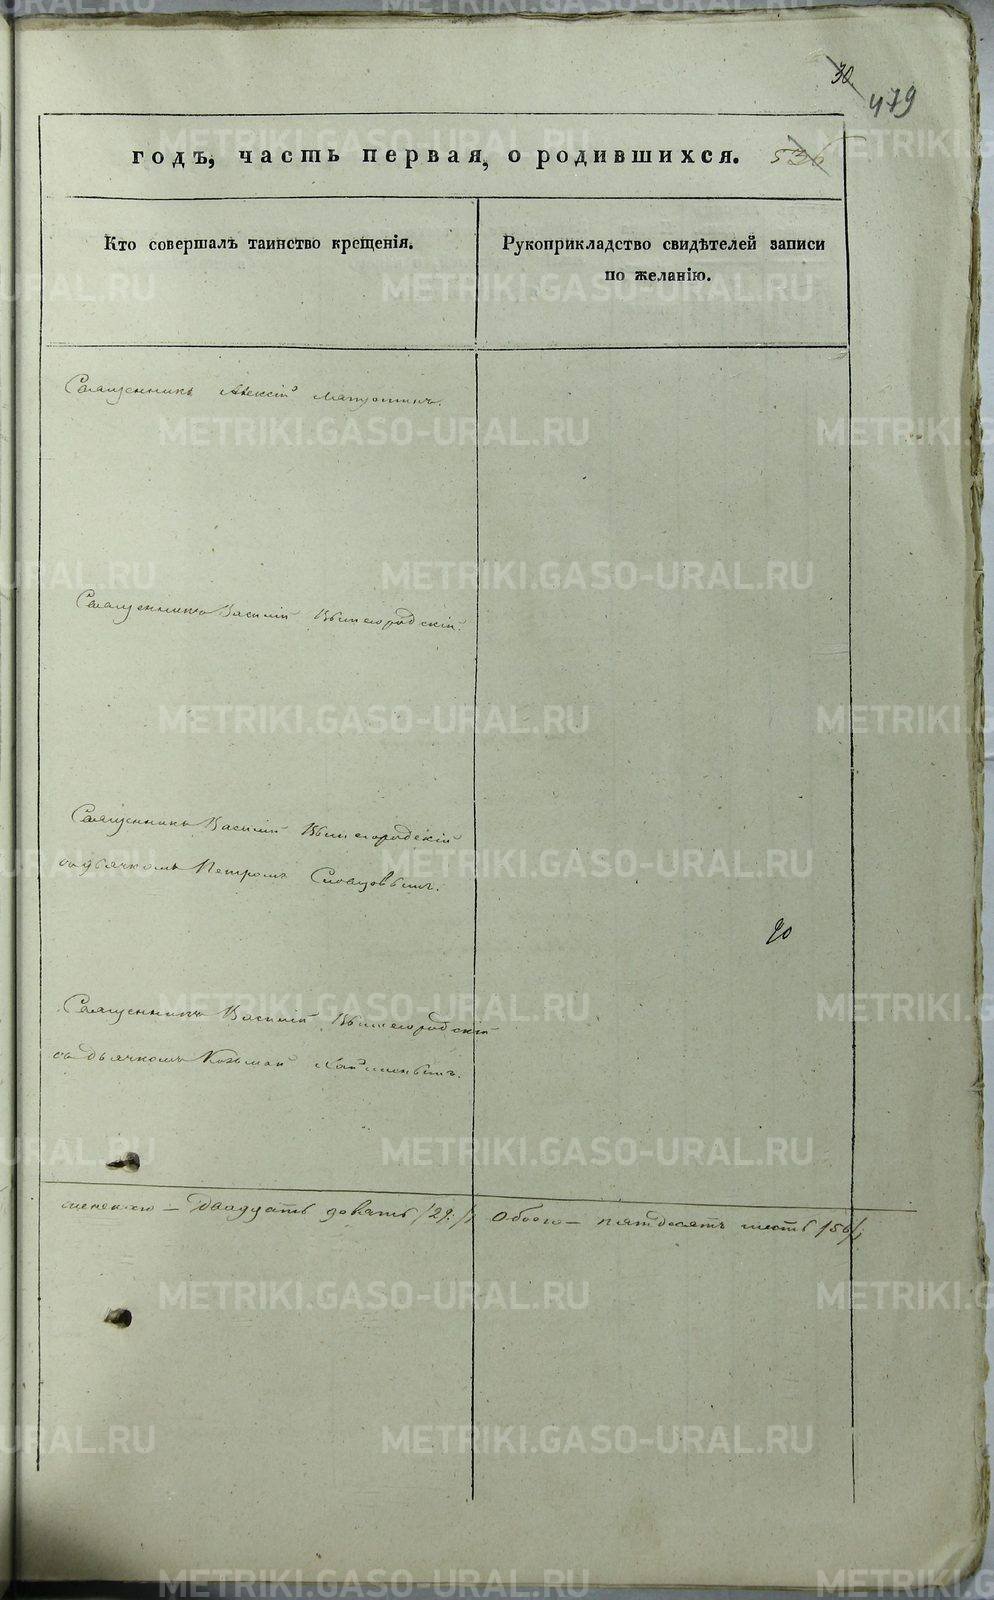 30
479
536
годъ, часть первая, о родившихся.
Кто совершалъ таинство крещенія.
Рукоприкладство свидѣтелей записи
по желанію.
Священникъ Алексій
Священникъ Василій Вышегородскій.
Священникъ Василій Вышегородскій
съ дьячкомъ Петромъ Словцовымъ.
90
Священникъ Василій Вышегородскій
съ дьячкомъ Козьмой
женскаго – двадцать девять /29:/;
Обоего – пятдесятъ шесть /56/;
METRIKI.GASO-URAL.RU